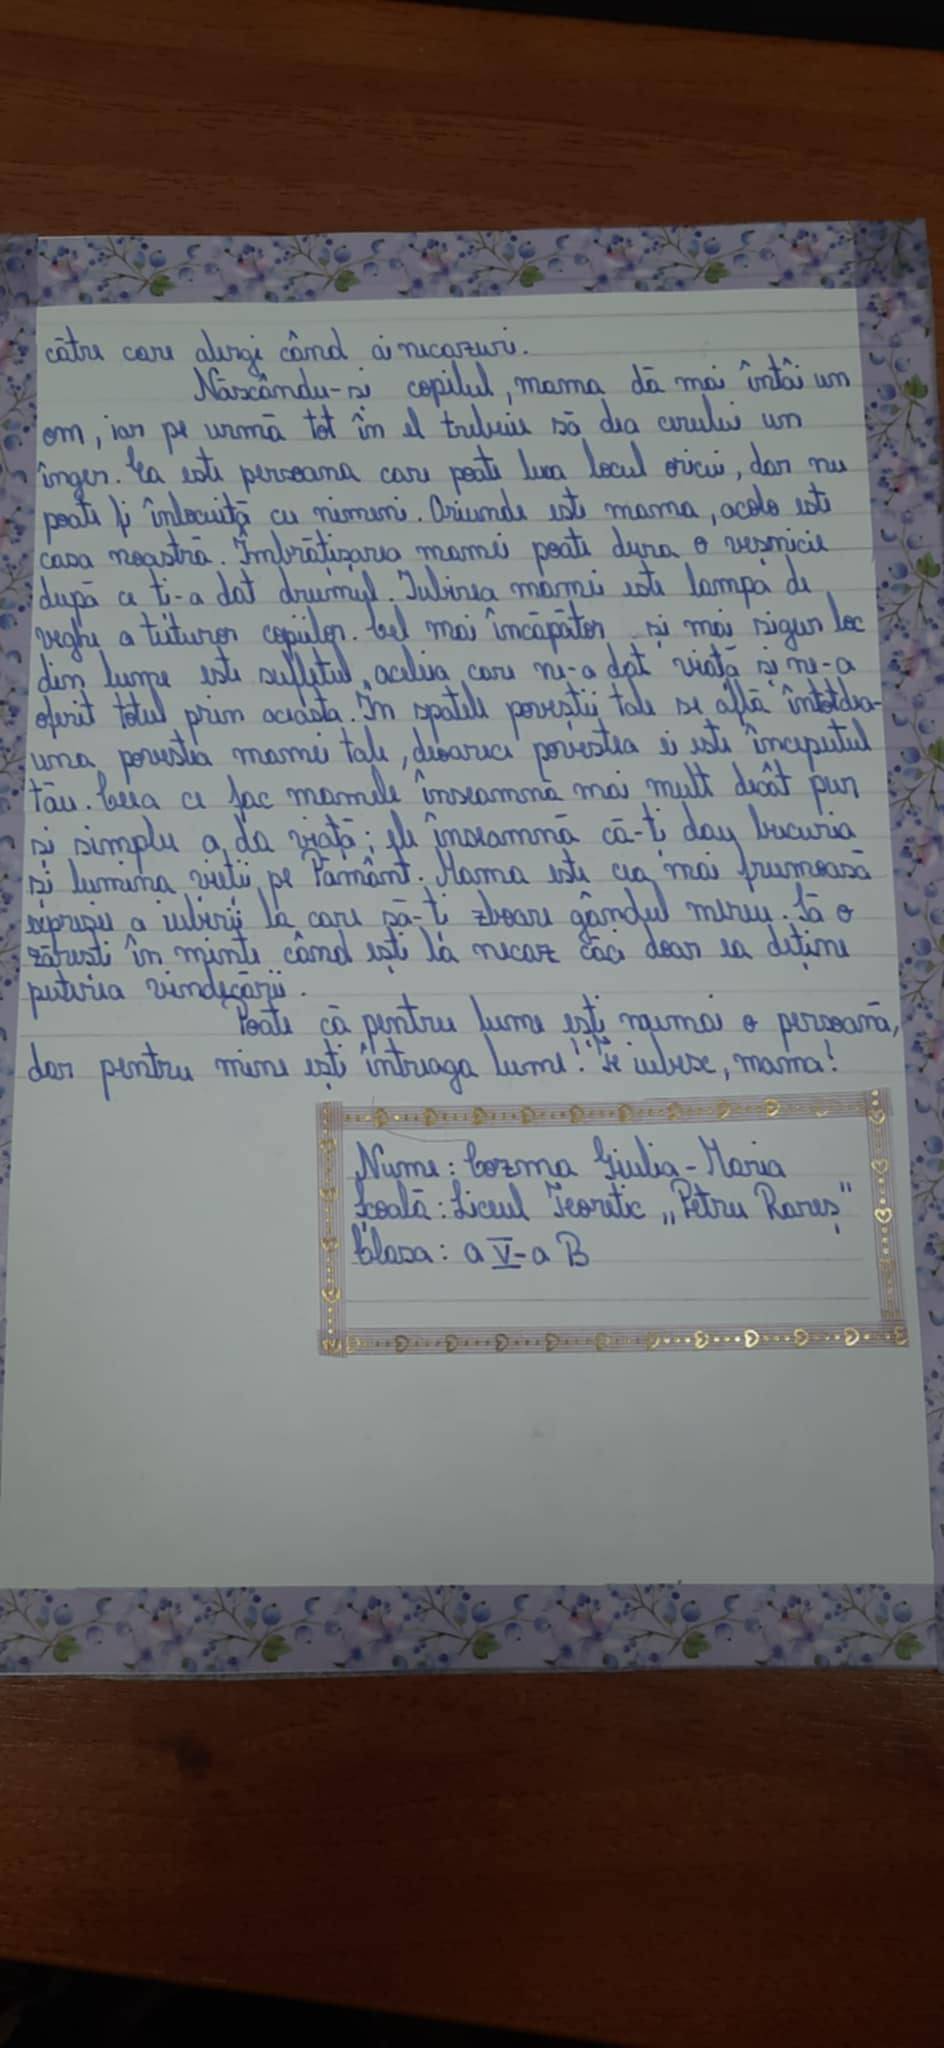 către care alergi când ai necazuri.
Născându-și copilul, mama dă mai întâi un
om, iar pe urmă tot în el trebuie să dea cerului un
înger. Ea este persoana care poate lua locul oricui, dar nu
poate fi înlocuită cu nimeni. Oriunde este mama, acolo este
casa noastră. Îmbrățișarea mamei poate dura o veșnicie
după ce ți-a dat drumul. Iubirea mamei este lampa de
veghe a tuturor copiilor. Cel mai încăpător și mai sigur loc
din lume este sufletul aceleia care ne-a dat viață și ne-a
oferit totul prin aceasta. În spatele poveștii tale se află întotdea-
una povestea mamei tale, deoarece povestea ei este începutul
tău. Ceea ce fac mamele înseamnă mai mult decât pur
și simplu a da viață; ele înseamnă că-ți dau bucuria
și lumina vieții pe Pământ. Mama este cea mai frumoasă
expresie a iubirii la care să-ți zboare gândul mereu. Să o
zărești în minte când ești la necaz căci doar ea deține
puterea vindecării.
Poate că pentru lume ești numai o persoană,
dar pentru mine ești întreaga lume! Te iubesc, mama!
Nume: Cozma Giulia-Maria
Școală: Liceul Teoretic „Petru Rareș"
Clasa: a V-a B